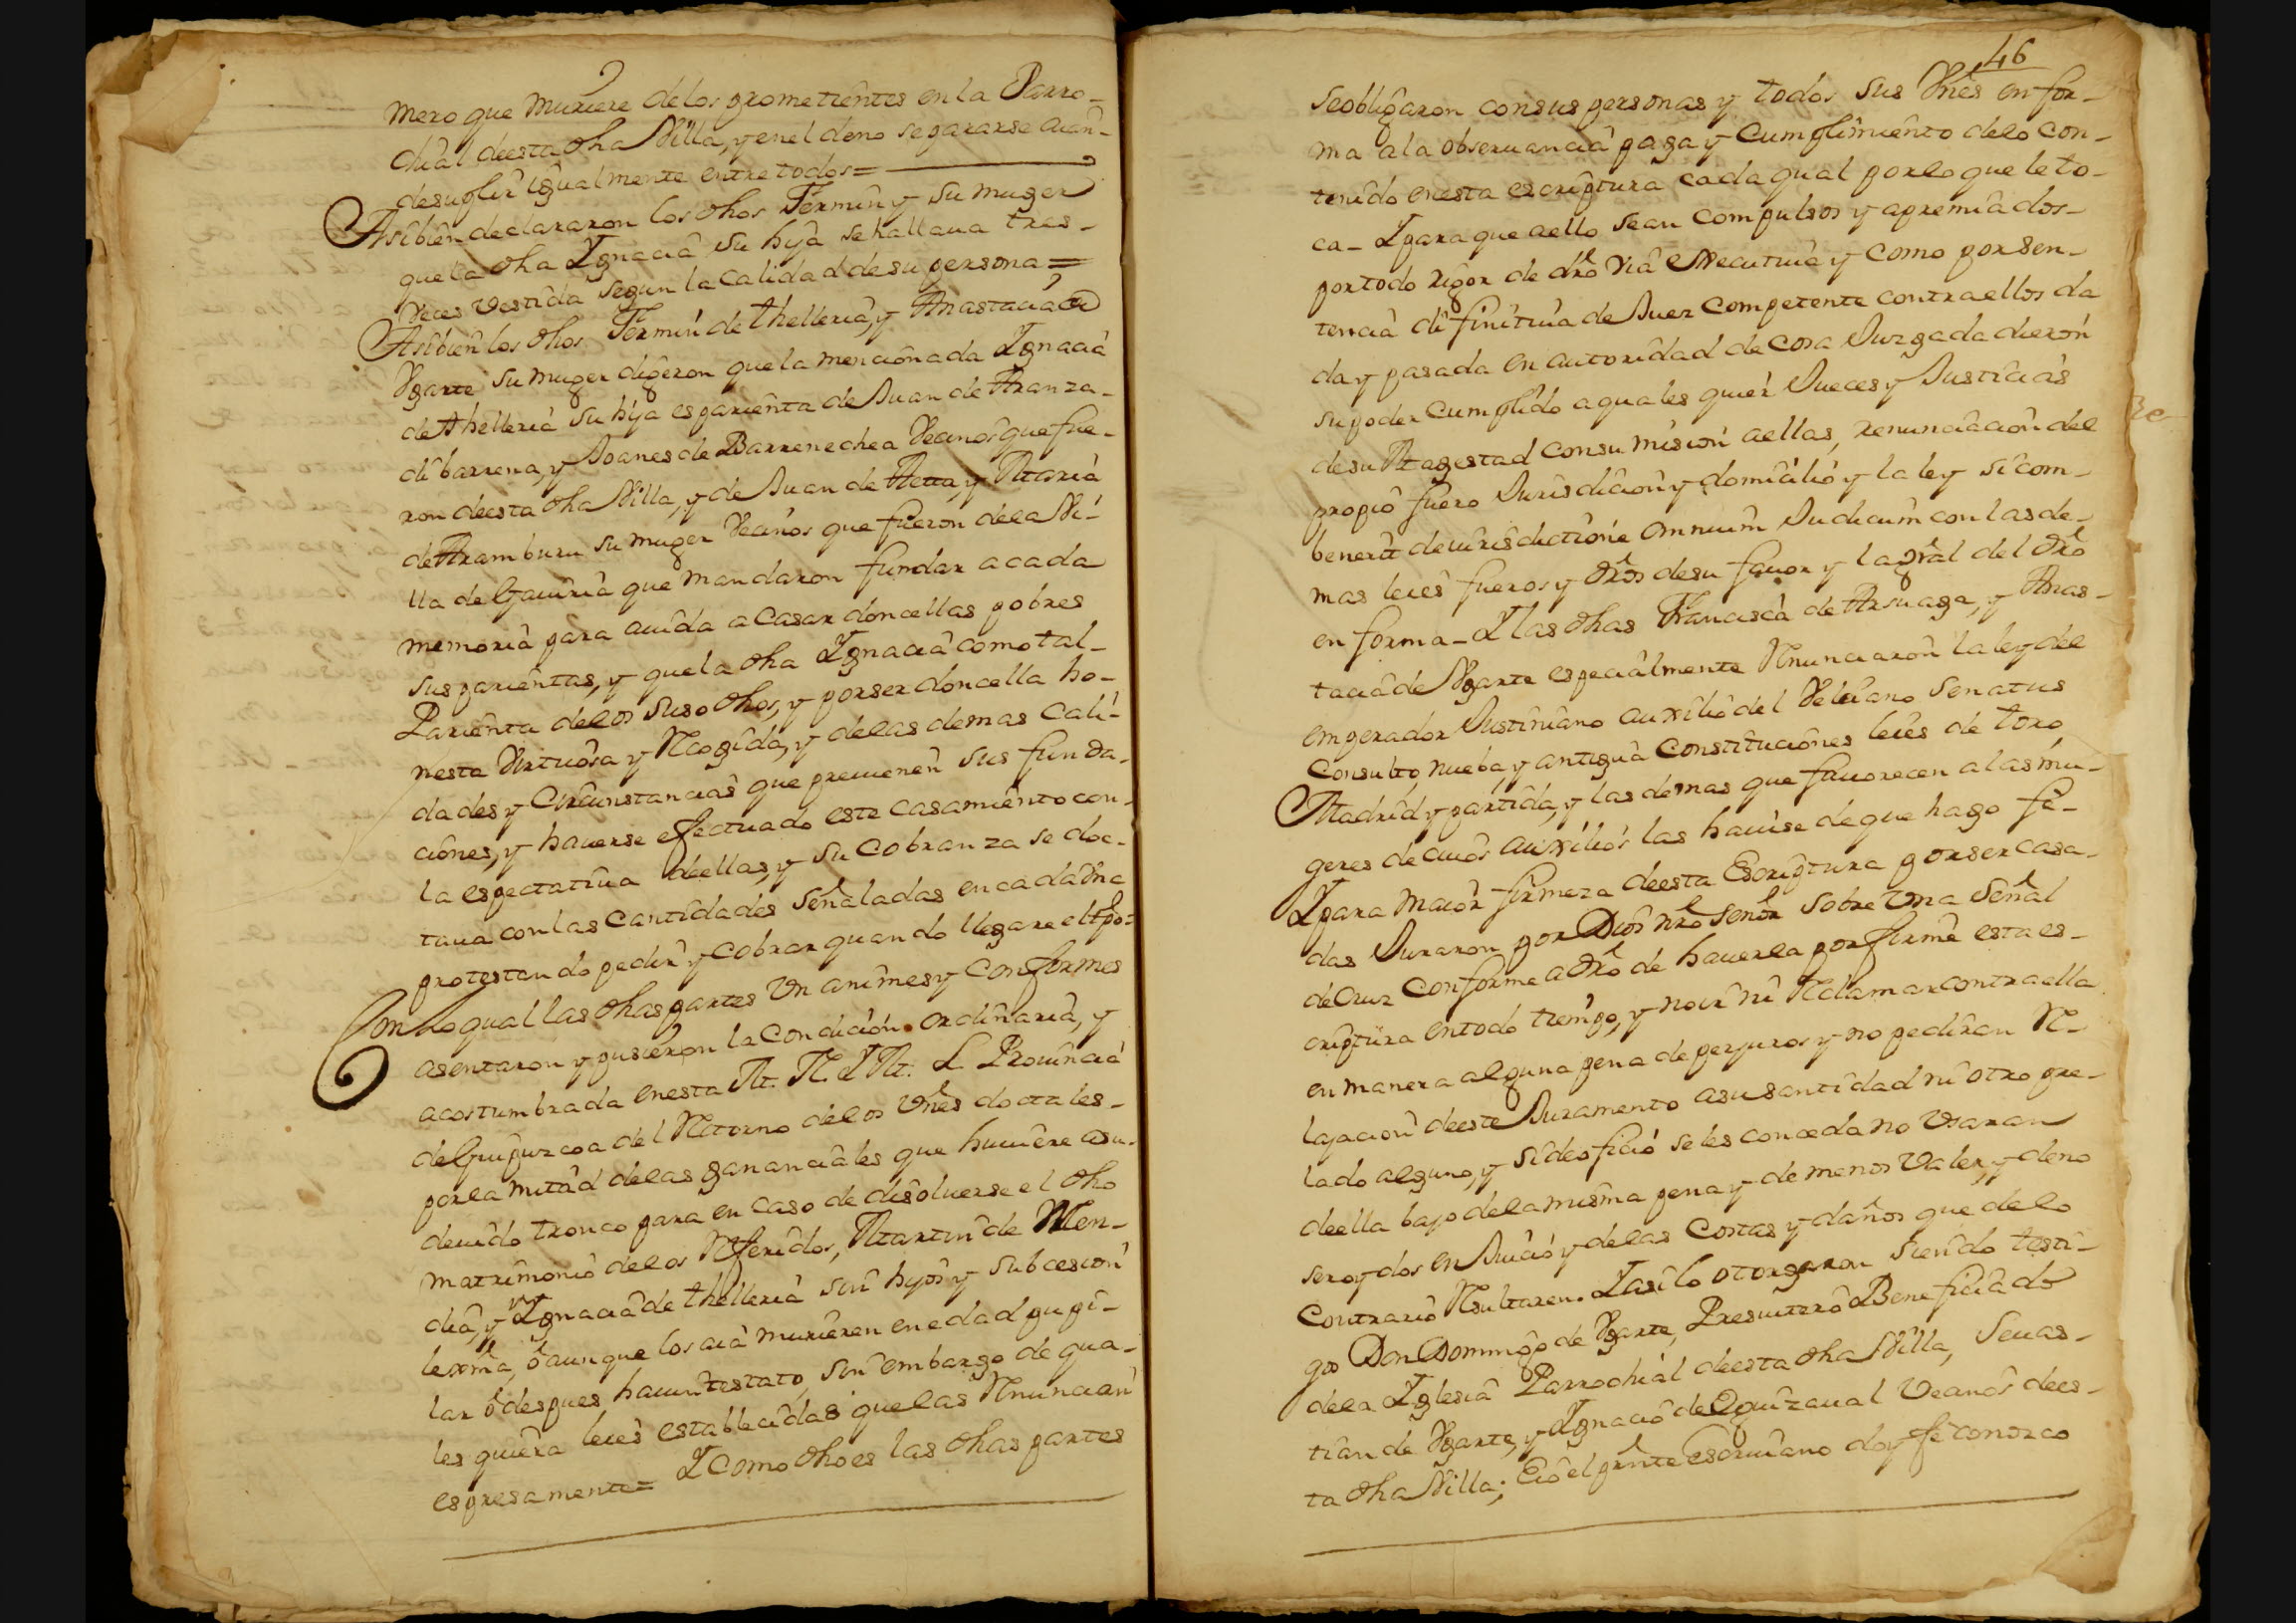 mero que muriere delos prometientes en la Parro-
chial deesta dha Villa, y en el de no separarse aian
de suplir igualmente entre todos =
Asibien declararon los dhos Fermin y su muger
que la dha Ygnacia su hija se hallaua tres-
veces vestida segun la calidad de su persona =
Asibien los dhos Fermin de thelleria, y Anastacia de
Vgarte su muger digeron que la mencionada Ygnacia
de thelleria su hija es parienta de Juan de Aranza-
dibarrena, y Joanes de Barrenechea Vecinos que fue-
ron deesta dha Villa, y de Juan de Aetta y Maria
de Aramburu su muger Vecinos que fueron dela Vi-
lla de Gauiria que mandaron fundar a cada
memoria para auida a Casar doncellas pobres
sus parientas, y que la dha Ygnacia como tal-
Parienta delos suso dhos, y por ser doncella ho-
nesta Virtuosa y Recogida, y delas demas Cali-
dades y Circunstancias que preuienen sus funda-
ciones, y hauerse efectuado este casamiento con-
la espectatiua deellas, y su cobranza se doc-
taua con las cantidades señaladas en cada Vna
protestando pedir y cobrar quando llegare el tpo=
Con lo qual las dhas partes Vnanimes y Conformes
asentaron y pusieron la Condicion ordinaria, y
acostumbrada en esta M. N. Y M. L. Prouincia
de Guipuzcoa del Retorno delos Vnes doctales-
por la mitad delas gananciales que huuiere a su-
deuido tronco para en caso de disoluerse el dho
matrimonio delos Referidos, Martin de Men-
dia, y Ygnacia de thelleria sin hijos y subcesion
lexma, ô aunque los aia murieren en edad pupi-
lar ô despues hauintestato, sin embargo de qua-
les quiera leies establecidas que las Renuncian
espresamente= Y Como dho es las dhas partes
46
se obligaron con sus personas y todos sus Vnes en for-
ma a la obseruancia paga y Cumplimiento delo Con-
tenido en esta escriptura cada qual por lo que le to-
ca- Y para que a ello sean Compulsos y apremiados-
por todo rigor de dro via executiua y como por sen-
tencia difinitiua de Juez Competente contra ellos da
da y pasada en autoridad de cosa Juzgada dieron
su poder Cumplido a quales quier Jueces y Justicias
de su Magestad con su mision a ellas, renunciacion del
propio fuero Jurisdicion y domicilio y la ley sicom-
benerit de iurisdictione omnium Judicum con las de-
mas leies fueros y dros de su fauor y la gral del dro
en forma- Y las dhas Francisca de Arsuaga, y Anas-
tacia de Vgarte especialmente Renunciaron la ley del
emperador Justiniano auxilio del Veleiano Senatus
Consulto, nueba, y antigua Constituciones leies de toro
Madrid y partida, y las demas que fauorecen a las mu-
geres de cuios auxilios las hauise de que hago fe-
Y para maior firmeza deesta Escriptura por ser casa-
das Juraron por Dios nro señor sobre Vna Señal
de Cruz Conforme a dro de hauerla por firme esta es-
criptura en todo tiempo, y no ir ni Reclamar contra ella
en manera alguna pena de perjuros y no pediran Re-
lajacion deeste Juramento a su santidad ni otro pre-
lado alguno, y si de oficio se les conceda no Vsaran
deella bajo dela misma pena y de menos Valer, y de no
ser oydos en Juicio y delas Costas y daños que de lo
Contrario Resultaren. Y asi lo otorgaron siendo testi-
gos Don Domingo de Vgarte, Presuitero Beneficiado
dela Yglesia Parrochial deesta dha Villa, Seuas-
tian de Vgarte, y Ygnacio de Eguizaual Vecinos dees-
ta dha Villa; E io el prnte escriuano doy fe conozco